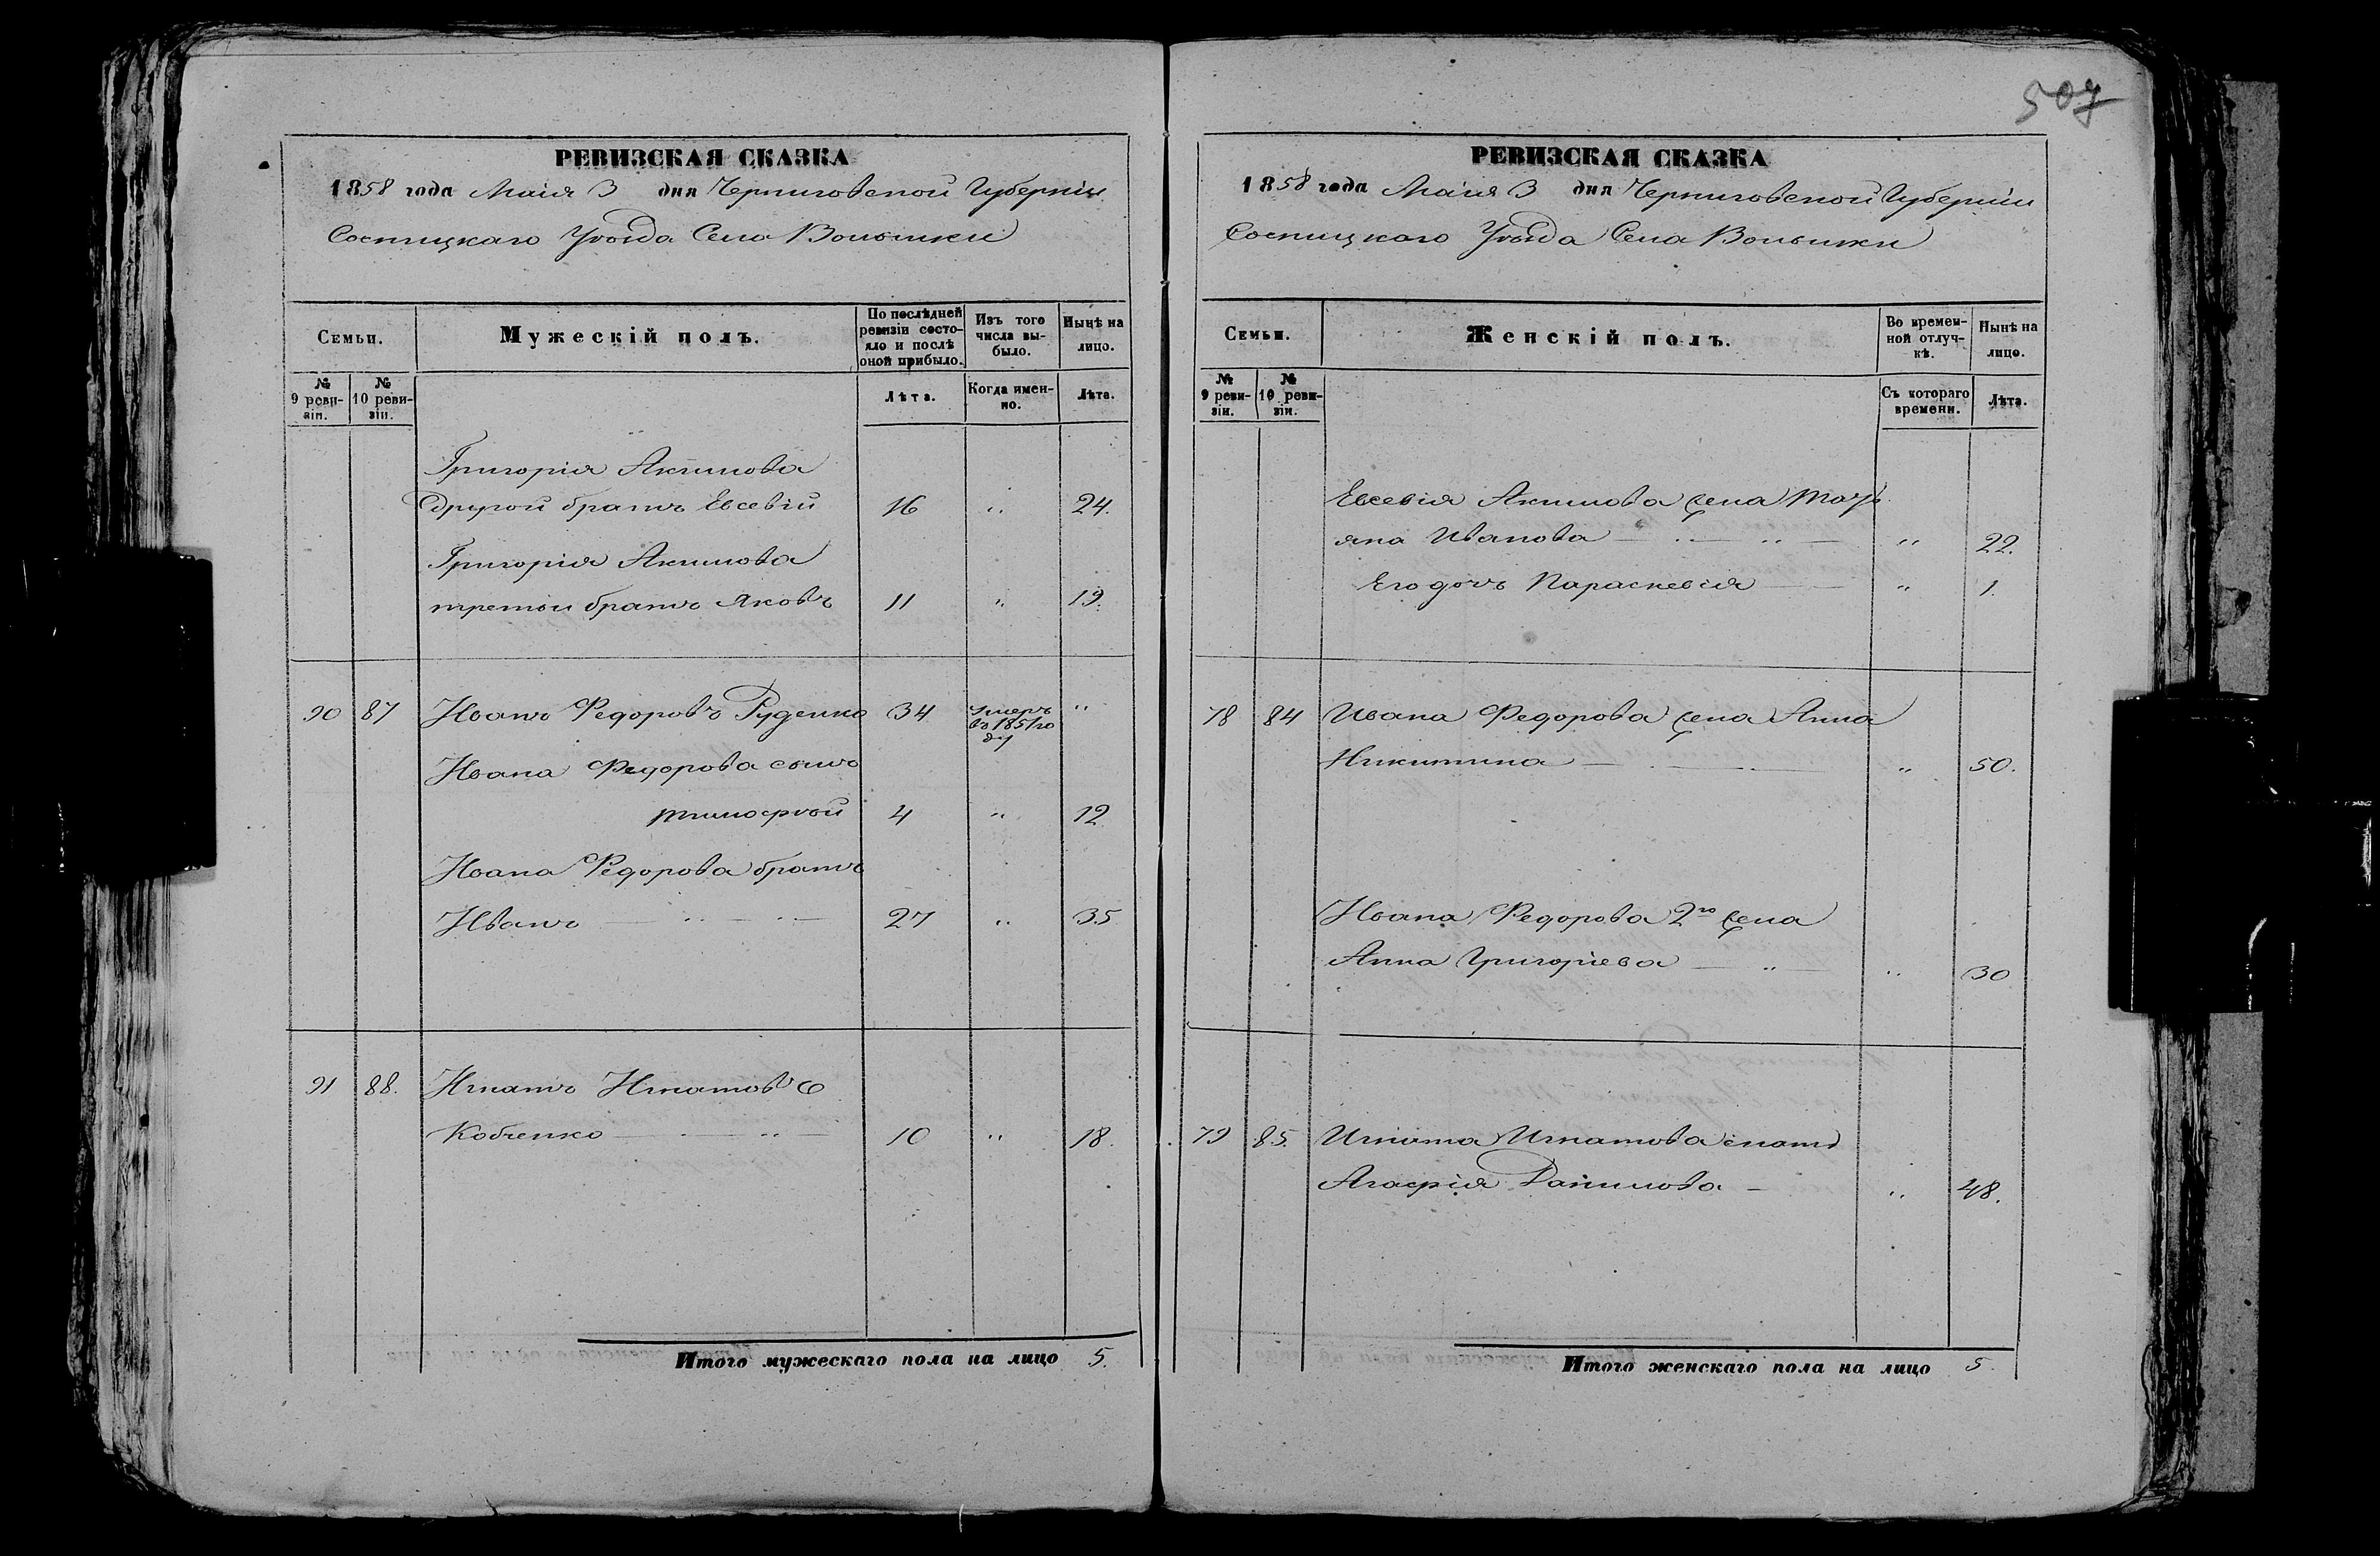 507
РЕВИЗСКАЯ СКАЗКА
1858 года Маія 3 дня Черниговской Губерніи
Сосницкаго Уѣзда Села Волынки
Семьи.
Мужескій полъ.
По послѣдней ревизіи состояло и послѣ оной прибыло.
Изъ того числа выбыло.
Нынѣ на лицо.
№ 9 ревизіи.
№ 10 ревизіи.
Лѣта.
Когда именно.
Лѣта.
Григорія Акимова
другой братъ Евсевій 16 " 24.
Григорія Акимова
третьи братъ Яковъ 11 " 19.
90 87 Иванъ Федоровъ Руденко 34 умеръ въ 1851 году "
Ивана Федорова сынъ
Тимофѣй 4 " 12
Ивана Федорова братъ
Иванъ 27 " 35
91 88. Игнатъ Игнатовъ
Кобченко 10 " 18.
Итого мужескаго пола на лицо 5.
РЕВИЗСКАЯ СКАЗКА
1858 года Маія 3 дня Черниговской Губерніи
Сосницкаго Уѣзда Села Волынки
Семьи.
Женскій полъ.
Во временной отлучкѣ.
Нынѣ на лицо.
№ 9 ревизіи.
№ 10 ревизіи.
Съ котораго времени.
Лѣта.
Евсевія Акимова жена
Иванова " 22.
Его дочь Параскевія " 1.
78 84 Ивана Федорова жена Анна
Никитина " 50.
Ивана Федорова 2го жена
Анна Григоріева " 30
79 85. Игната Игнатова мать
Агафія Данилова " 48.
Итого женскаго пола на лицо 5.